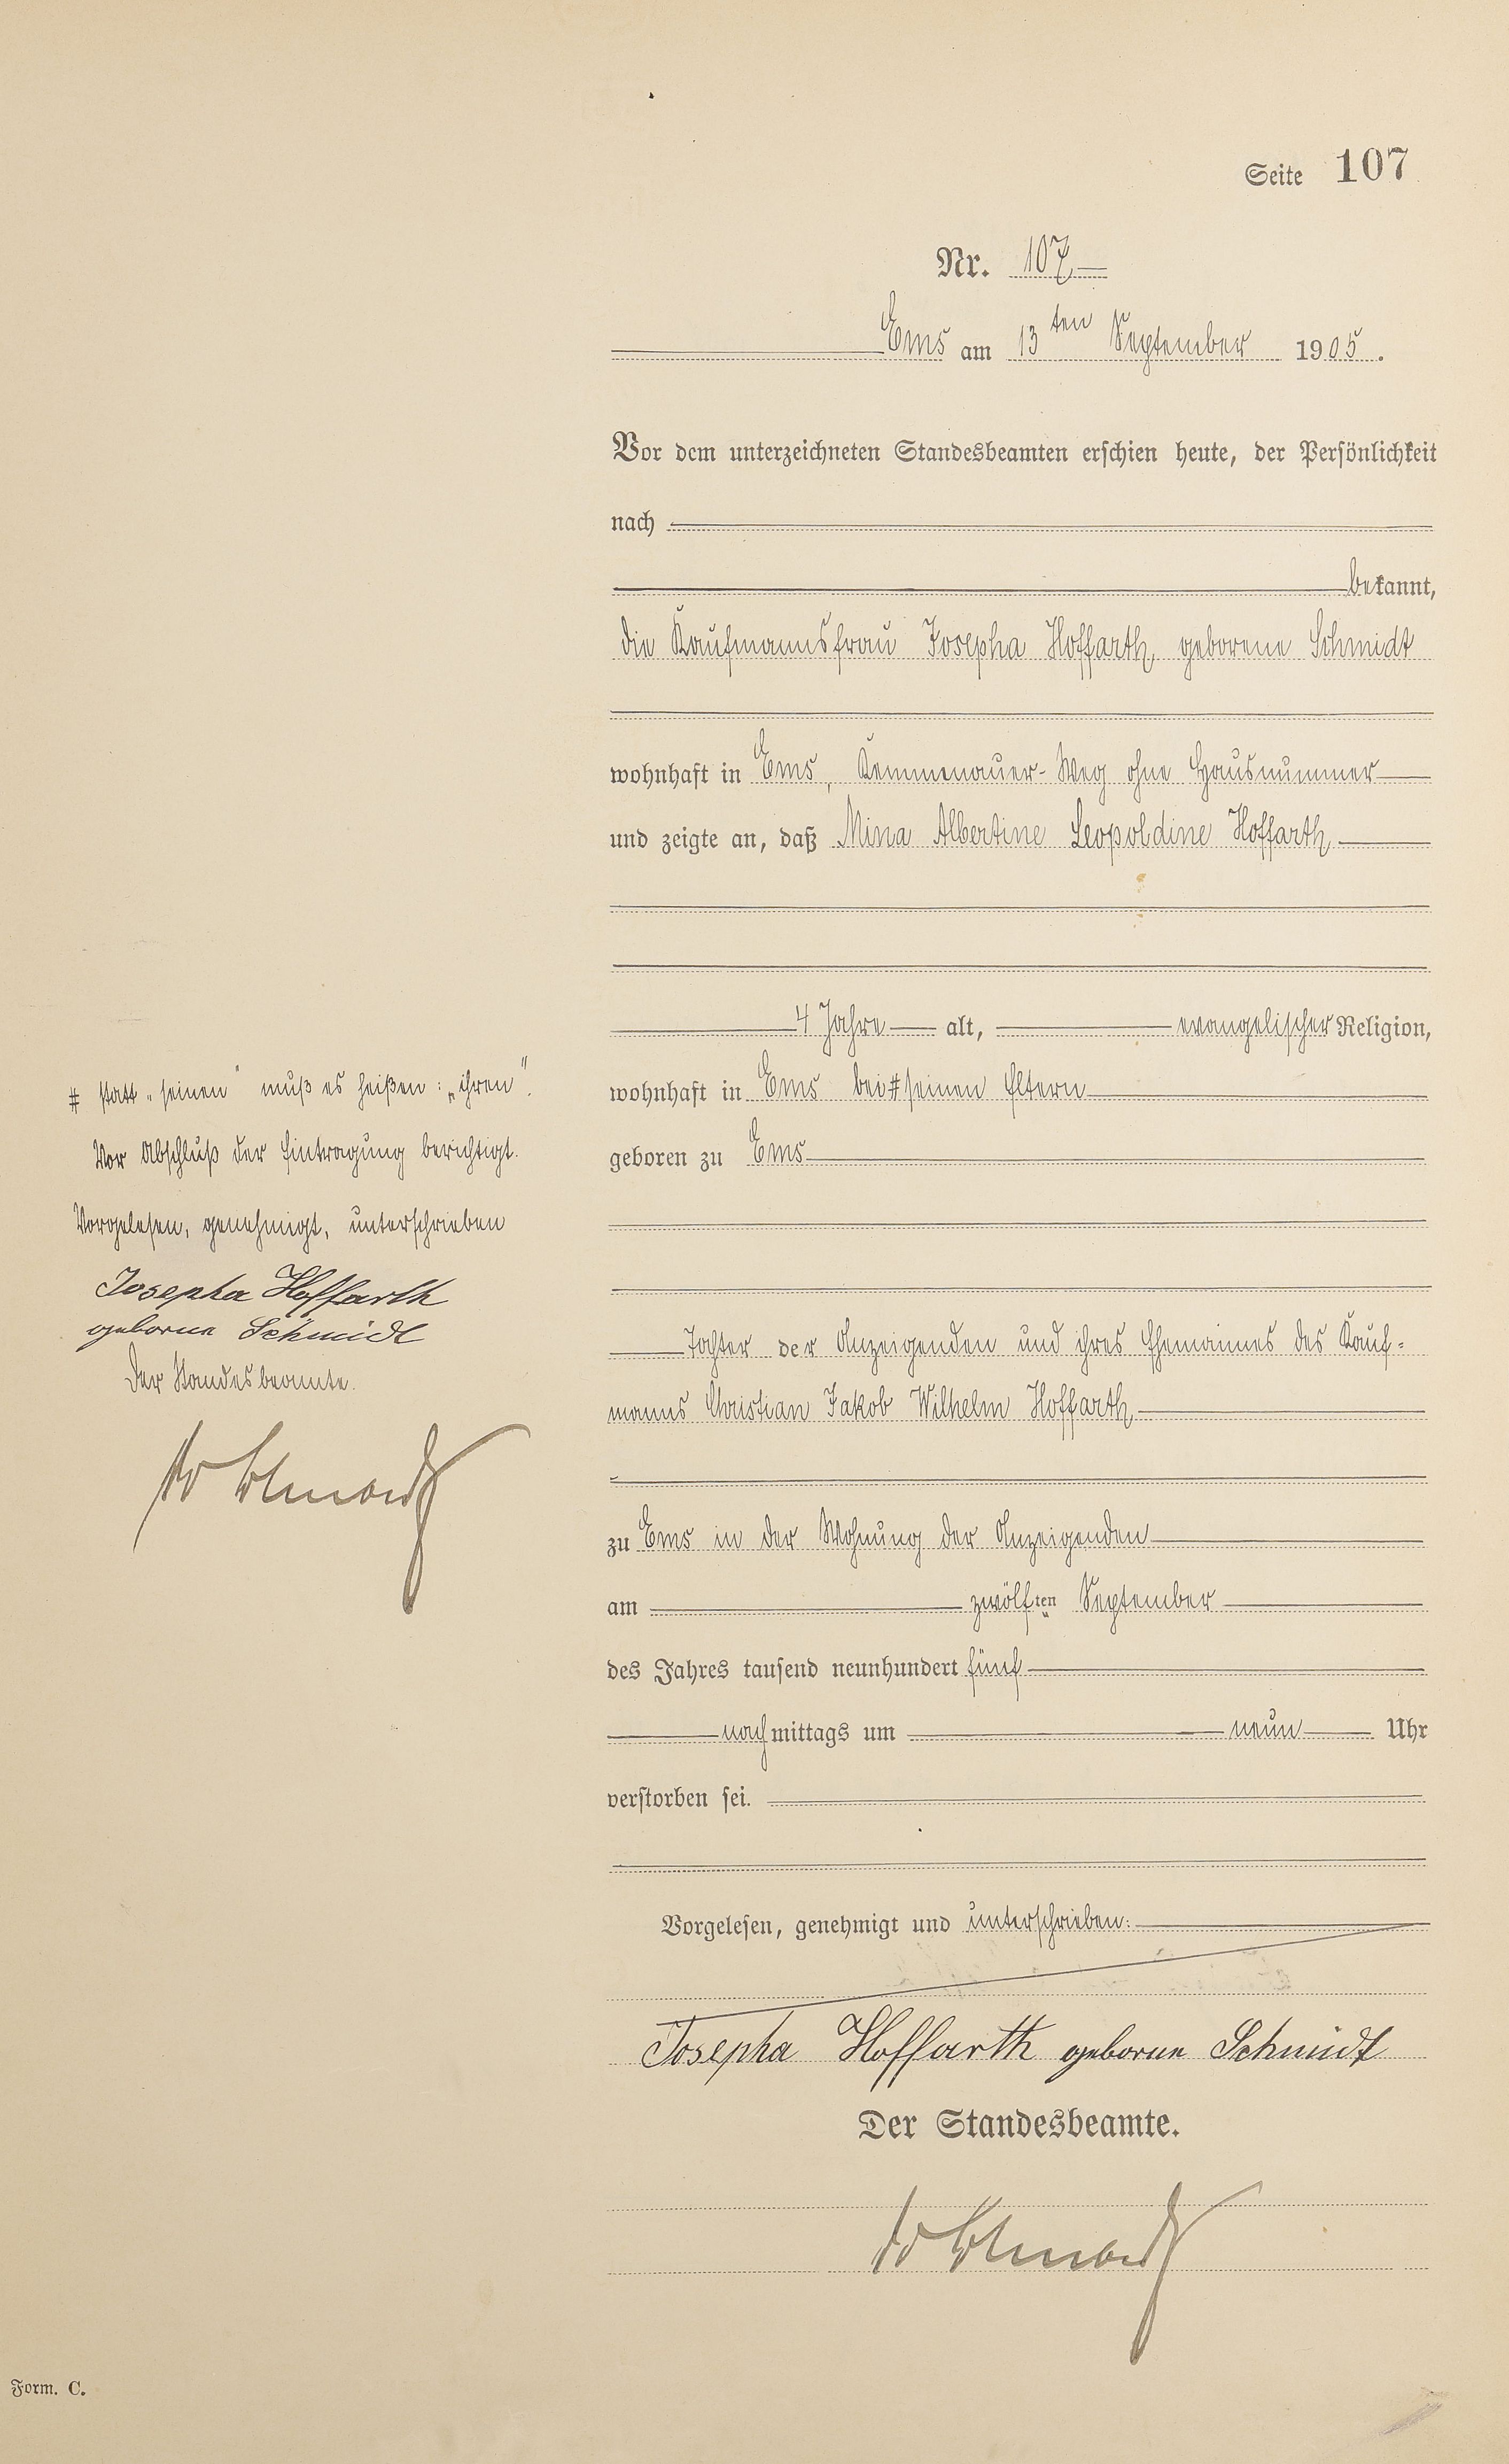 Seite 107
Nr. 107
Ems am 13ten September 1905.
Vor dem unterzeichneten Standesbeamten erschien heute, der Persönlichkeit
nach
bekannt,
die Kaufmannsfrau Josepha Hoffarth, geborene Schmidt
wohnhaft in Ems, Kemmenauer-Weg ohne Hausnummer
und zeigte an, daß Mina Albertine Leopoldine Hoffarth
4 Jahre alt, evangelischer Religion,
wohnhaft in Ems bei # seinen Eltern
geboren zu Ems
Tochter der Anzeigenden und ihres Ehemannes des Kauf-
manns Christian Jakob Wilhelm Hoffarth
zu Ems in der Wohnung der Anzeigenden
am zwölften September
des Jahres tausend neunhundert fünf
nachmittags um neun Uhr
verstorben sei.
Vorgelesen, genehmigt und unterschrieben:
Josepha Hoffarth geborne Schmidt
Der Standesbeamte.
# statt „seinen" muß es heißen: „ihren".
Vor Abschluß der Eintragung berichtigt.
Vorgelesen, genehmigt, unterschrieben
Josepha Hoffarth
geborne Schmidt
Der Standesbeamte.
Form. C.